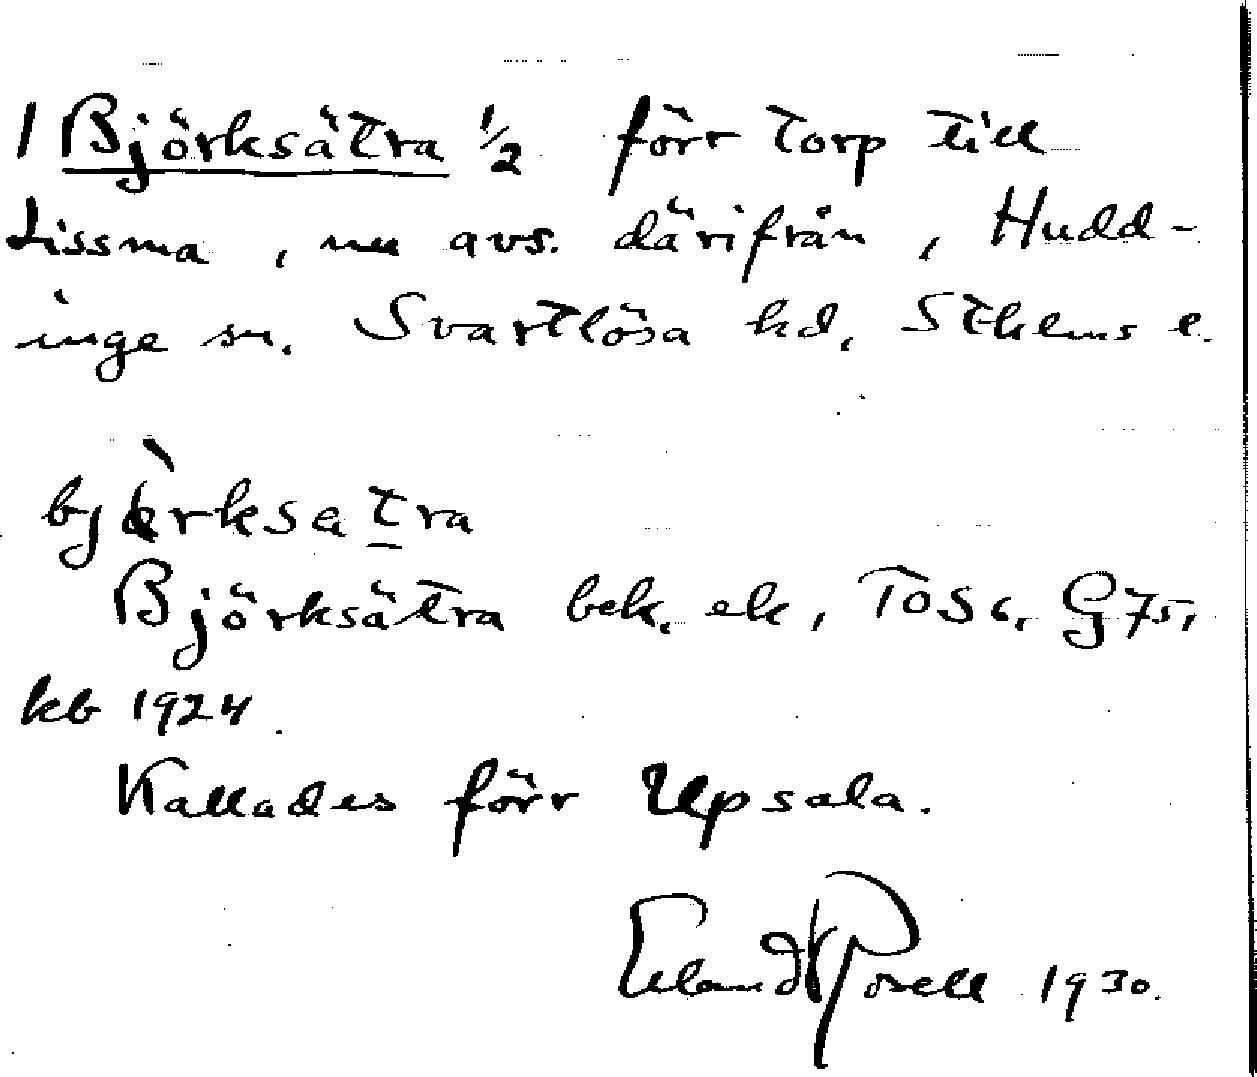 1 Björksätra 1/2 förr torp till
Lissma, nu avs. därifrån, Hudd-
inge sn. Svartlösa hd, Sthlms l.
bjòrksatra
Björksätra bek. ek, ToS 6, G 75,
kb 1924.
Kallades förr Upsala.
Erland Rosell 1930.